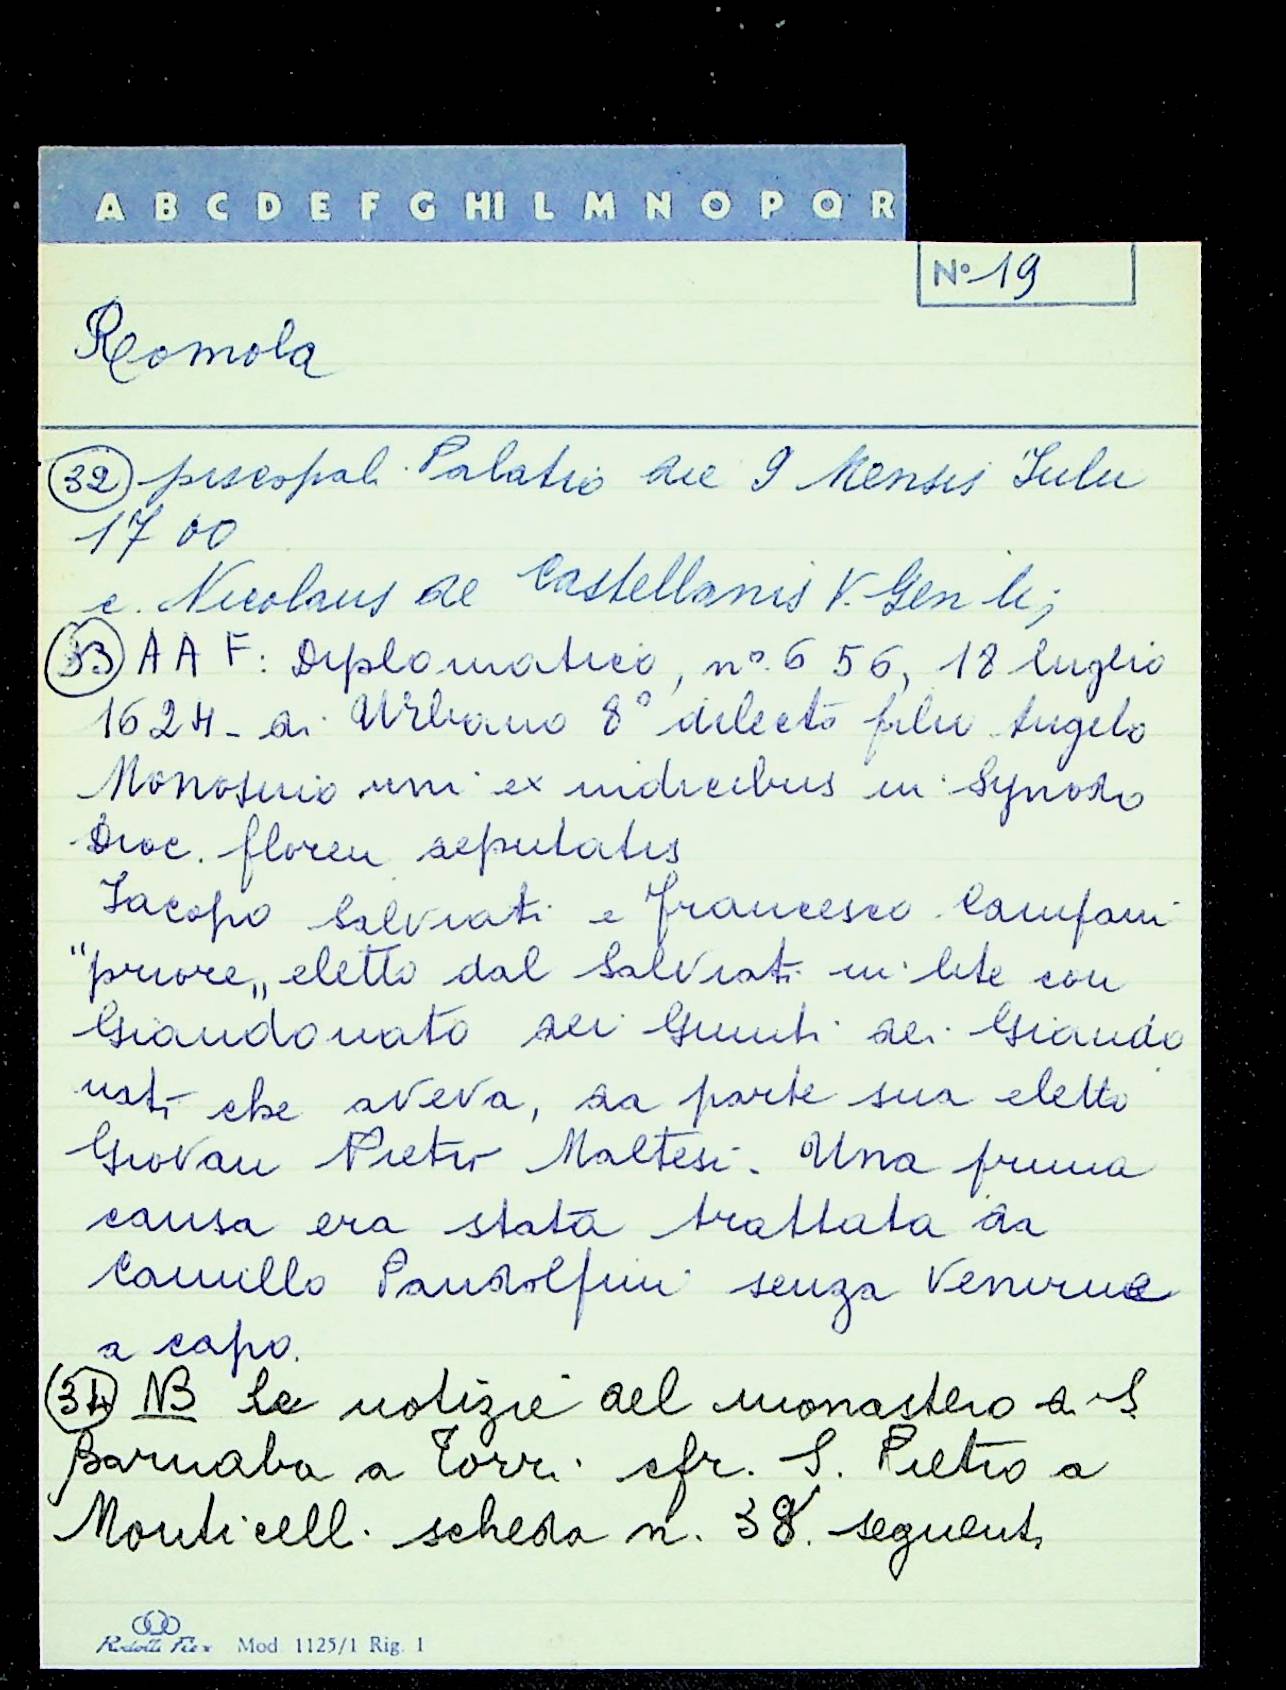 A B C D E F G HI L M N O P Q R
N° 19
Romola
32 piscopali Palatio die 9 Mensis Iulii
1700
c. Nicolaus de Castellanis V. Gen lis
33 A A F: Diplomatico, n° 656, 18 luglio
1624 - di Urbano 8° dilecto filio Angelo
Monosinio uni ex iudicibus in Synodo
Dioc. floren deputatis
Iacopo Salviati e Francesco Campani
"priore" eletto dal Salviati in lite con
Giandonato dei Giunti dei Giando
nati che aveva, da parte sua eletto
Giovan Pietro Maltesi. Una prima
causa era stata trattata da
Camillo Pandolfini senza venirne
a capo.
34 NB Le notizie del monastero di S.
Barnaba a Torri cfr. S. Pietro a
Monticelli scheda n. 38. seguenti
Mod 1125/1 Rig. 1